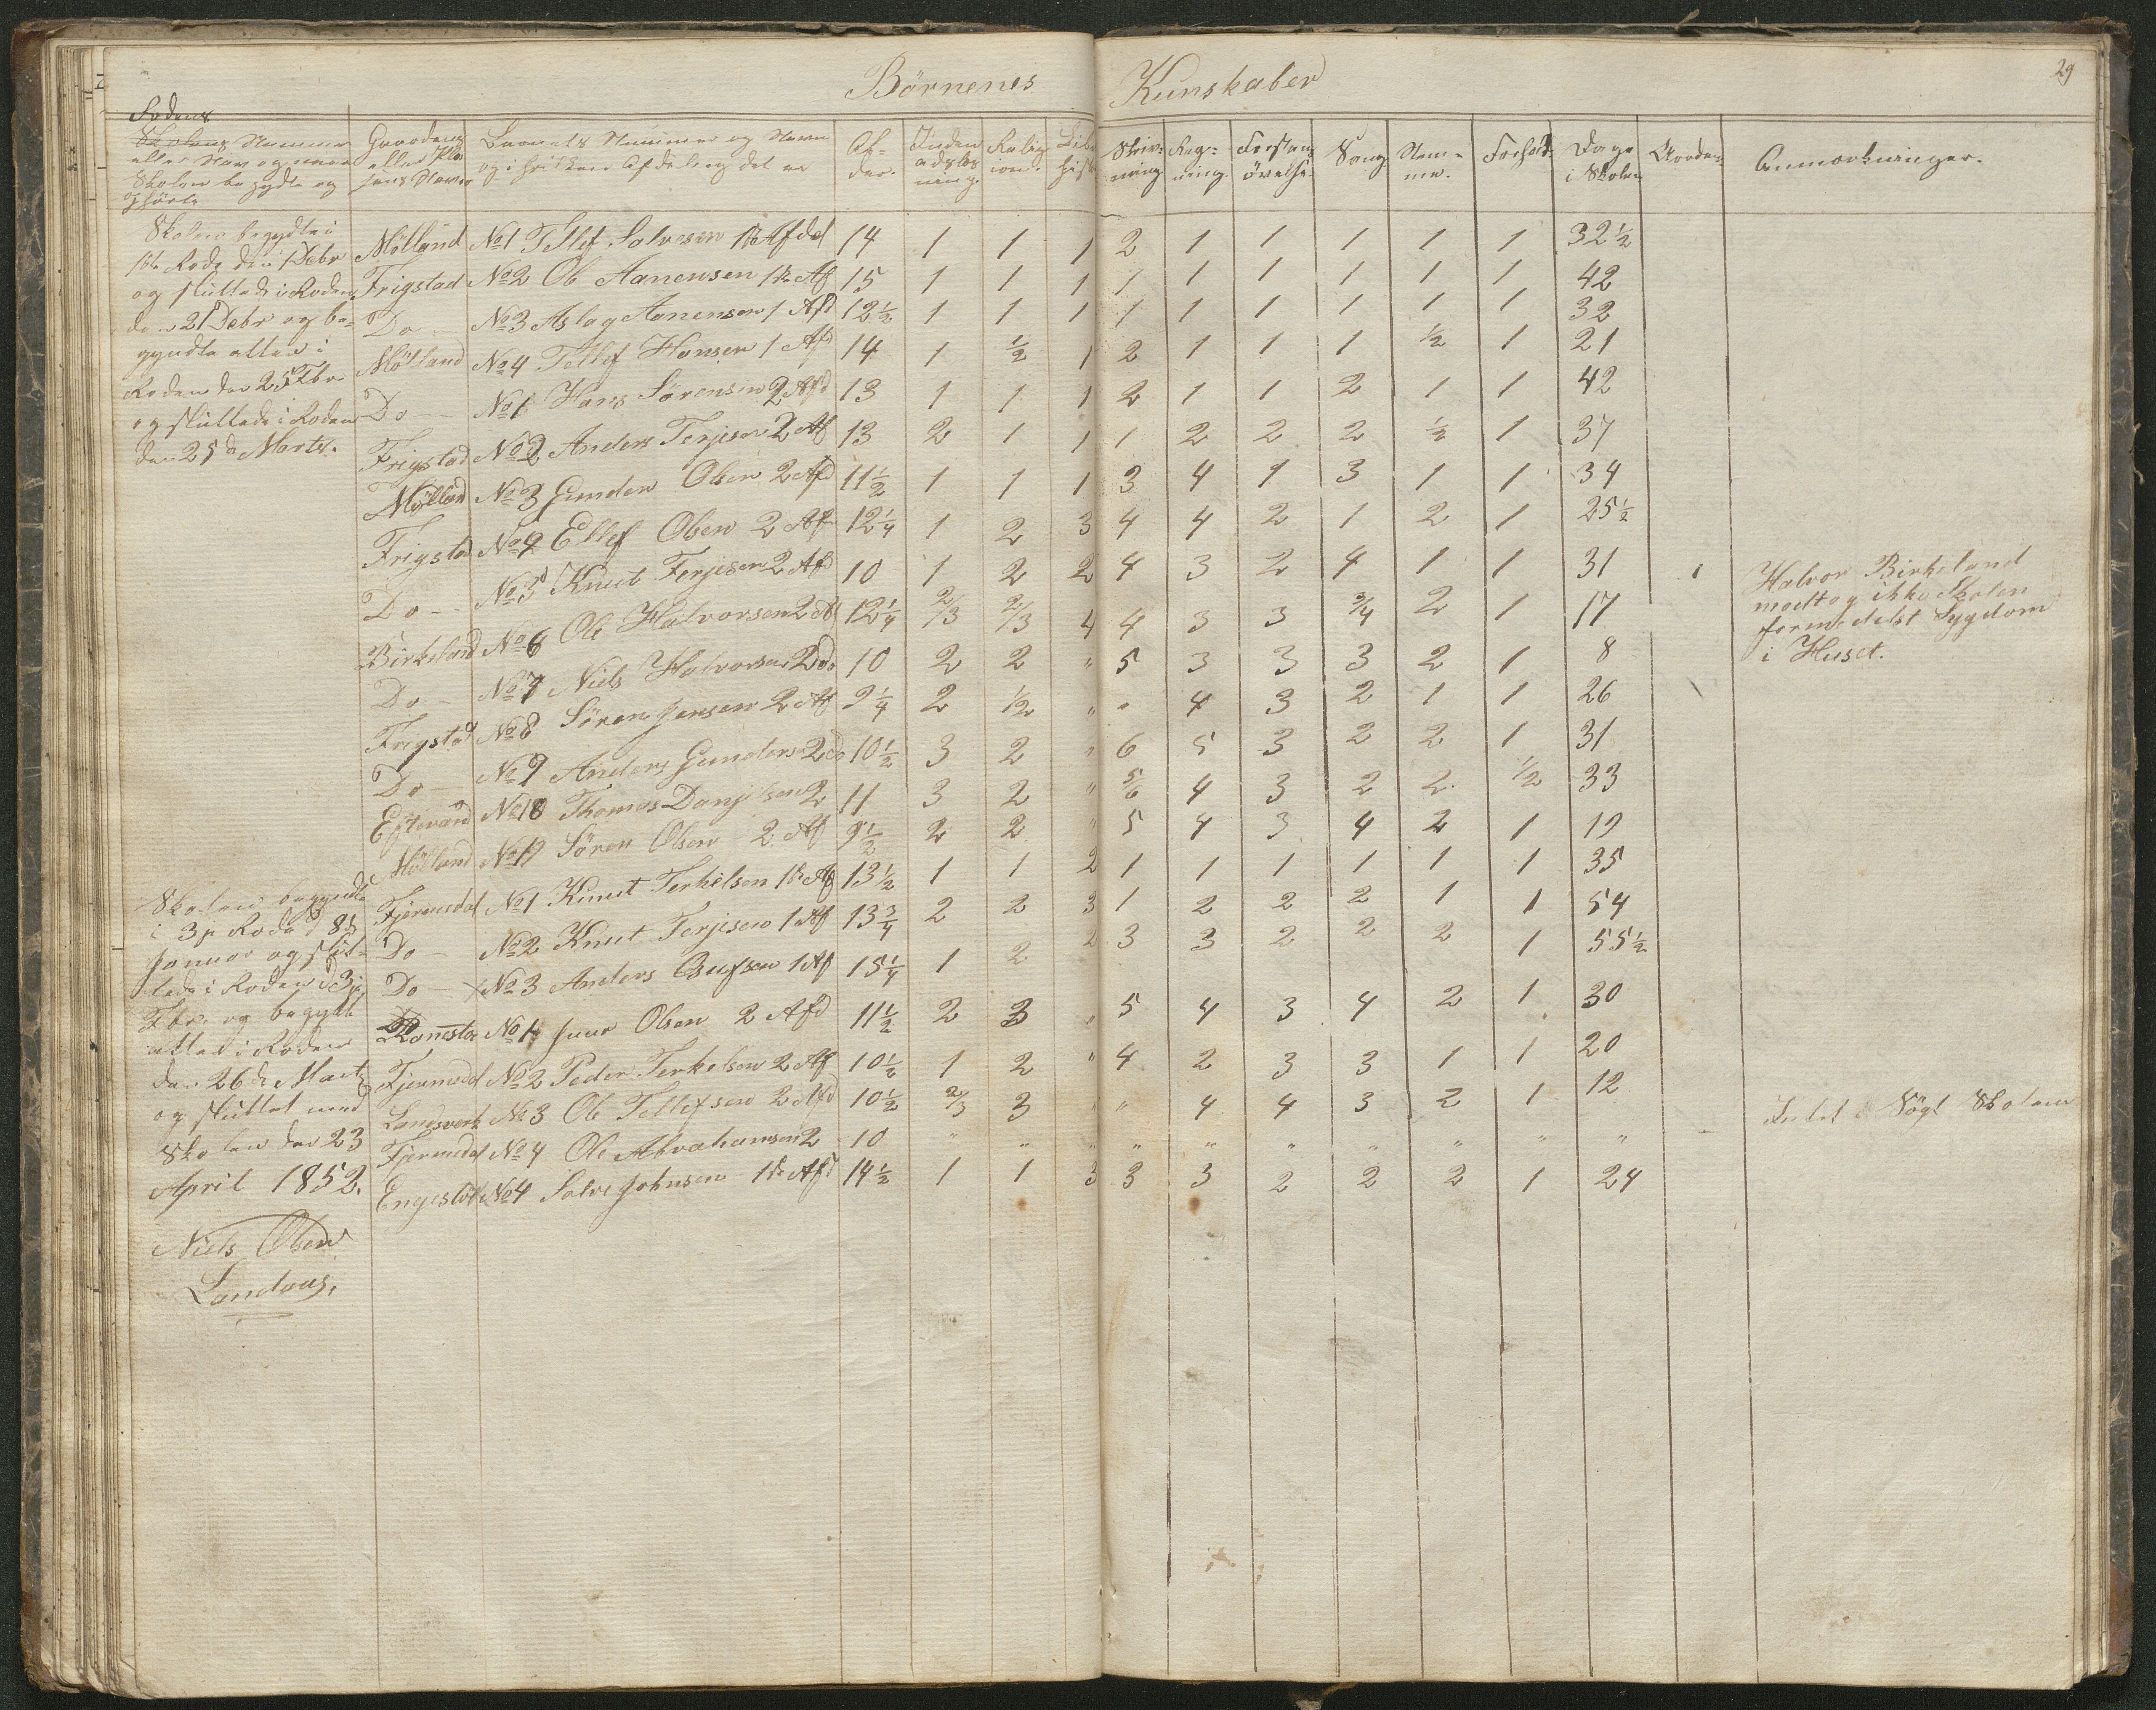 Börnenes Kunskaber
29
Rodens
Skolens Nummer Gaardens Barnets Nummer og Navn Al- Inden Relig Bibl Skriv- Reg- Forstan Sang Nem- Forhold Dage Anmærkninger.
eller Navn og naar eller og i hvilken Afdeling det er der. adslæs ion. Hist ning ning. övelse. me. i Skolen
Skolen begyndte og jens Navn ning
ophörte
Skolen begyndte i
1ste Rode den 1 Debr
og sluttede i Roden
den 21 Debr og be-
gyndte atter i
Roden den 25 Fbr
og sluttede i Roden
den 25de Marts.
Mölland No 1 Tellef Salvesen 1ste Afdel 14 1 1 1 2 1 1 1 1 1 32½
Frigstad No 2 Ole Aanensen 1ste Af 15 1 1 1 1 1 1 1 1 1 42
Do No 3 Aslag Aanensen 1 Afd 12½ 1 1 1 1 1 1 1 1 1 32
Mölland No 4 Tellef Hansen 1 Afd 14 1 ½ 1 2 1 1 1 ½ 1 21
Do No 1 Hans Sörensen 2 Afd 13 1 1 1 2 1 1 2 1 1 42
Frigstad No 2 Anders Terjesen 2 Af 13 2 1 1 1 2 2 2 ½ 1 37
Mölland No 3 Gunder Olsen 2 Afd 11½ 1 1 1 3 4 1 3 1 1 34
Frigstad No 4 Ellef Olsen 2 Af 12¼ 1 2 3 4 4 2 1 2 1 25½
Do No 5 Knut Terjesen 2 Afd 10 1 2 2 4 3 2 4 1 1 31
Birkeland No 6 Ole Halvorsen 2 Af 12¼ 2/3 2/3 4 4 3 3 3/4 2 1 17
Do No 7 Niels Halvorsen 2 do 10 2 2 " 5 3 3 3 2 1 8
Halvor Birkeland
modtog ikke Skolen
formedelst Sygdom
i Huset.
Frigstad No 8 Sören Jensen 2 Af 9¼ 2 ½ " " 4 3 2 1 1 26
Do No 9 Anders Gunders 2 do 10½ 3 2 " 6 5 3 2 2 1 31
Eftevand No 10 Thomas Danjelsen 2 11 3 2 " 5/6 4 3 2 2 ½ 33
Mölland No 11 Sören Olsen 2 Af 9½ 2 2 " 5 4 3 4 2 1 19
Skolen begyndte
i 3je Rode d 8de
Januar og slut-
tede i Roden d 3je
Fbr. og begyndt
atter i Roden
den 26de Marts
og sluttet med
Skolen den 23
April 1852.
Fjermedal No 1 Knut Terkelsen 1ste Af 13½ 1 1 2 1 1 1 1 1 1 35
Do No 2 Knut Terjesen 1 Af 13¾ 2 2 3 1 2 2 2 1 1 54
Do No 3 Anders 1 Af 15¼ 1 2 2 3 3 2 2 2 1 55½
No 1 Olsen 2 Afd 11½ 2 3 " 5 4 3 4 2 1 30
Fjermedal No 2 Peder Terkelsen 2 Af 10½ 1 2 " 4 2 3 3 1 1 20
Landsverk No 3 Ole Tellefsen 2 Afd 10½ 2/3 3 " " 4 4 3 2 1 12
Fjermedal No 4 Ole Abrahamsen 2 10 " " " " " " " " "
Sögt Skolen
No 4 Salve Johnsen 1ste Afd 14½ 1 1 3 3 3 2 2 2 1 24
Niels Olsen
Landaas.